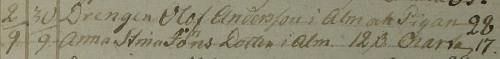 2 30 Drengen Olof Andersson i Alm och Pigan 28
9 9 Anna Stina Jöns Dotter i Alm. 12 β Charta 17.